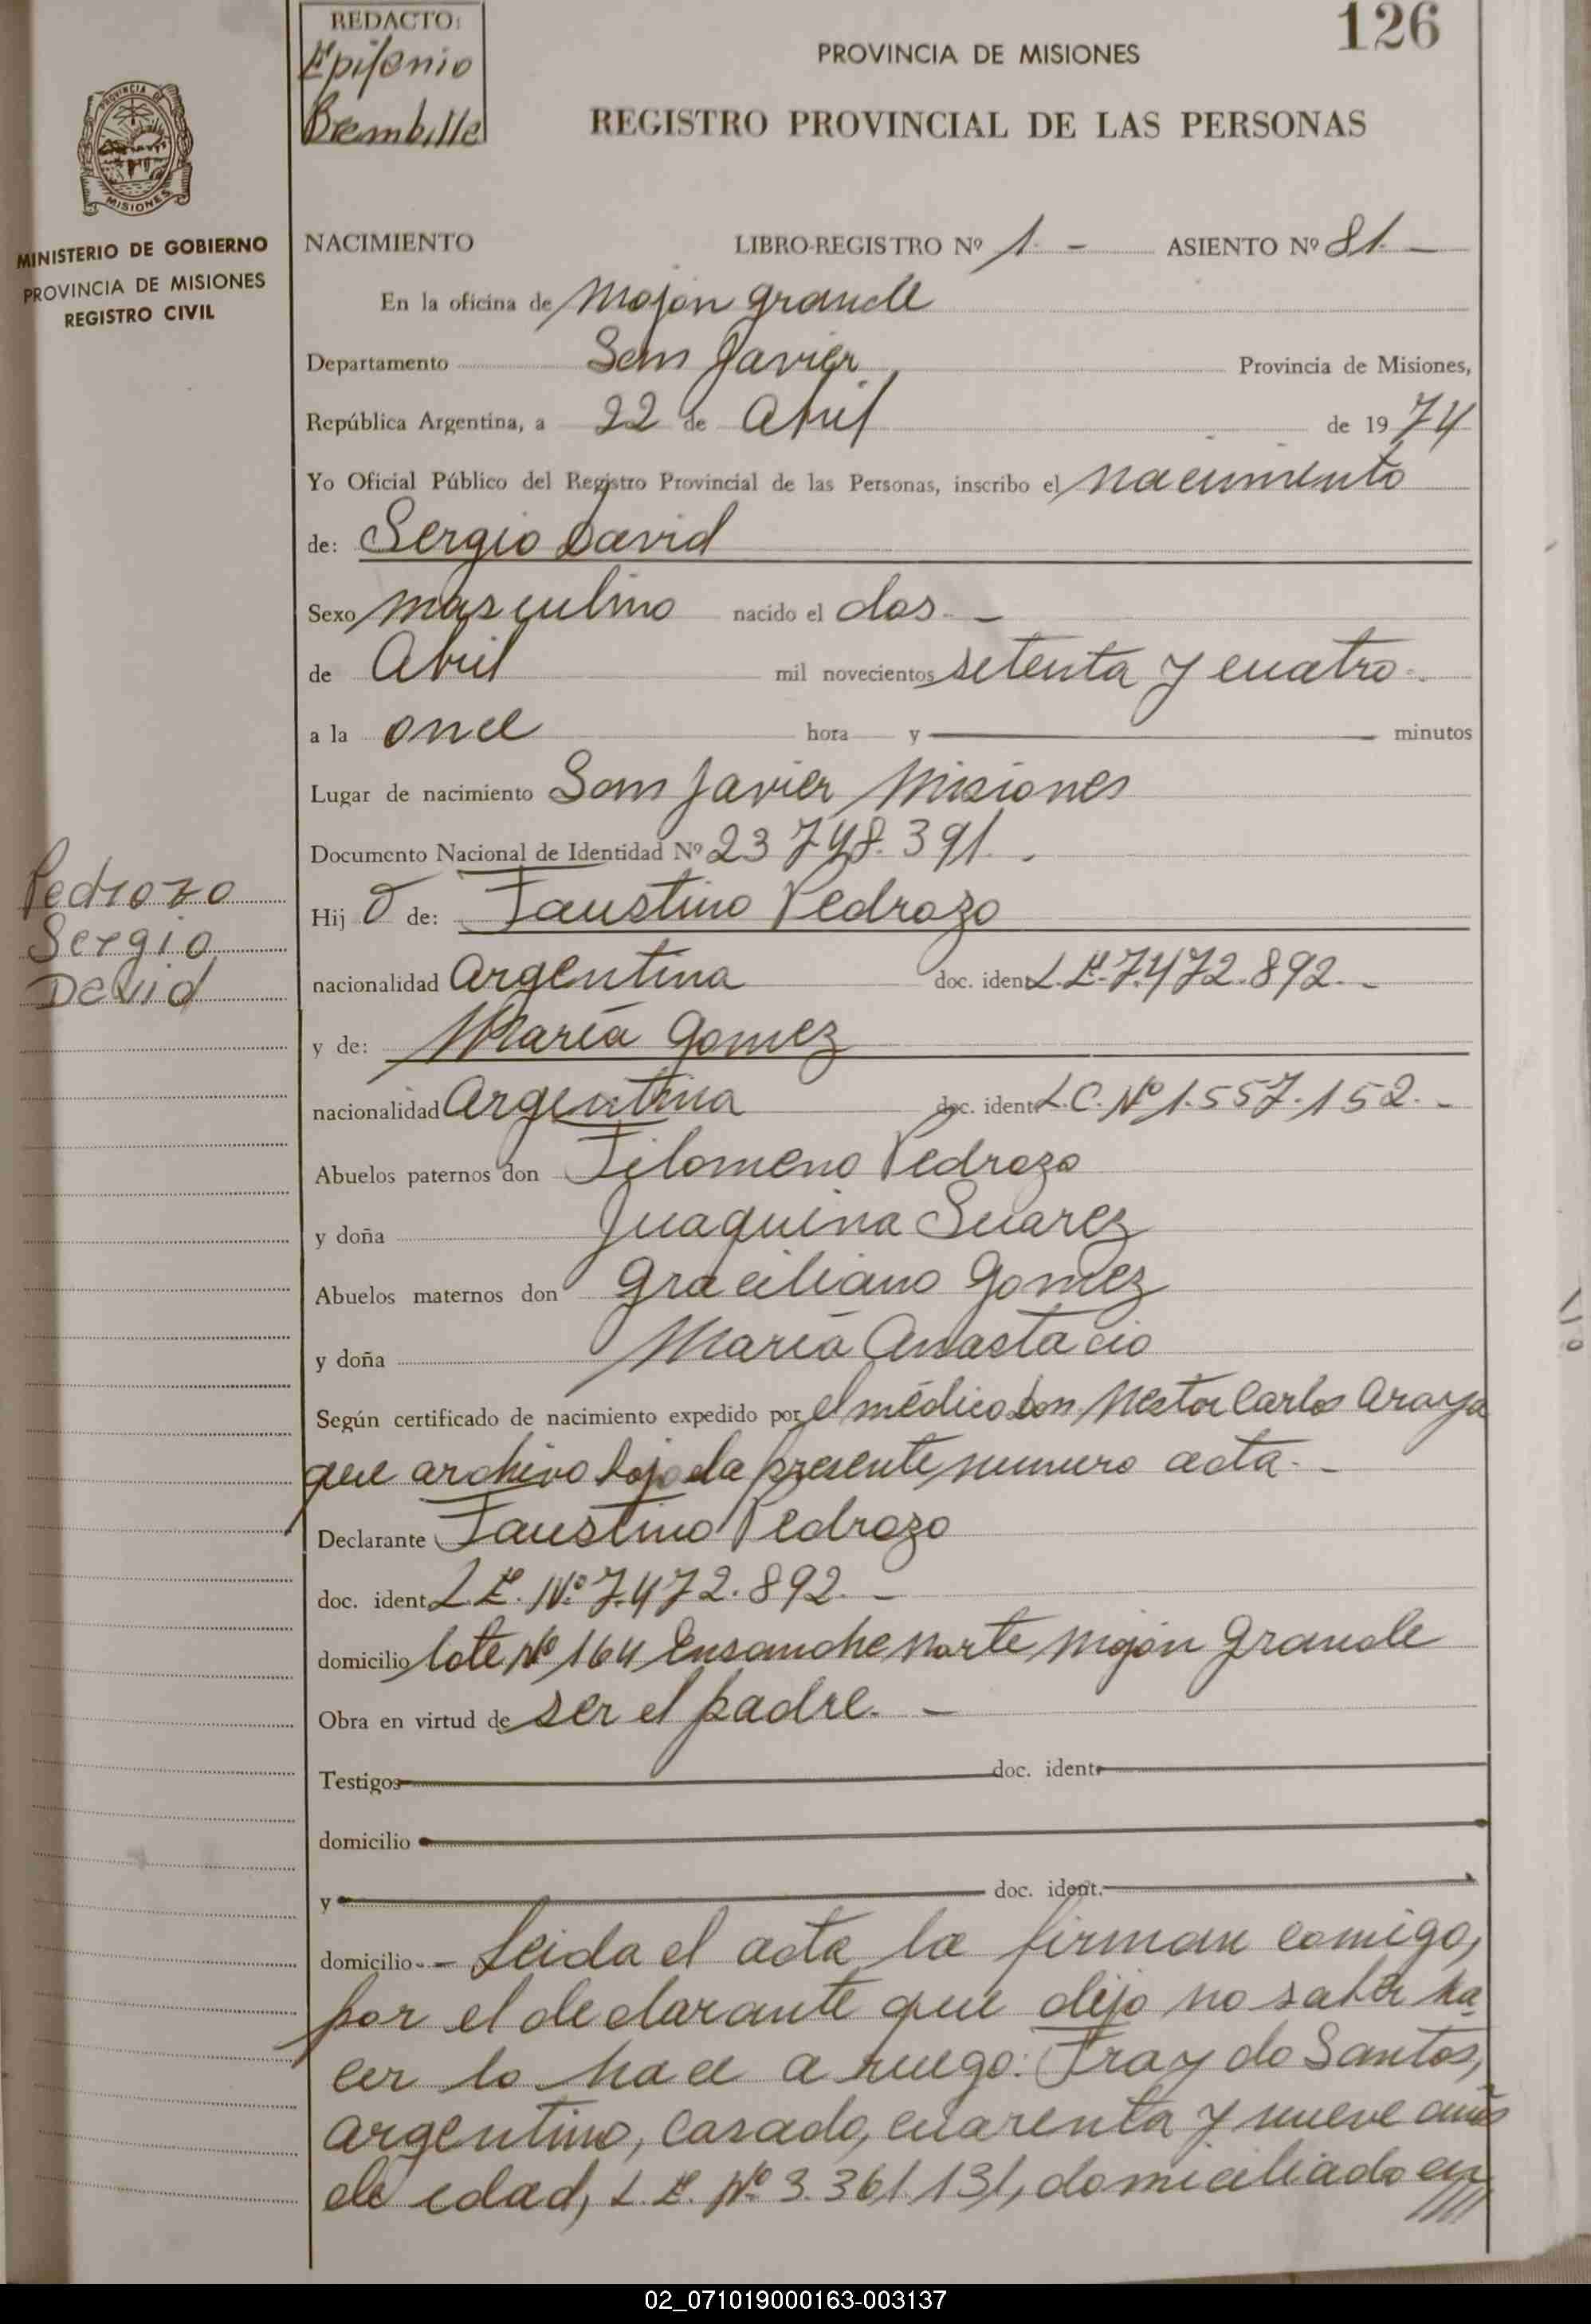 REDACTO:
Epifanio
Brembille
126
PROVINCIA DE MISIONES
REGISTRO PROVINCIAL DE LAS PERSONAS
PROVINCIA DE
MISIONES
MINISTERIO DE GOBIERNO
PROVINCIA DE MISIONES
REGISTRO CIVIL
NACIMIENTO LIBRO-REGISTRO Nº 1 - ASIENTO Nº 81. -
En la oficina de Mojon grande
Departamento San Javier, Provincia de Misiones,
República Argentina, a 22 de Abril de 1974
Yo Oficial Público del Registro Provincial de las Personas, inscribo el nacimiento
de: Sergio David
Sexo masculino nacido el dos -
de Abril mil novecientos setenta y cuatro.
a la once hora y minutos
Lugar de nacimiento San Javier Misiones
Documento Nacional de Identidad Nº 23 748.391.
Pedrozo
Sergio
David
Hij o de: Faustino Pedrozo
nacionalidad Argentina doc. ident. L.E. 7.472.892. -
y de: María Gomez
nacionalidad Argentina doc. ident. L.C. Nº 1.557.152. -
Abuelos paternos don Filomeno Pedrozo
y doña Juaquina Suarez
Abuelos maternos don Graciliano Gomez
y doña María Anastacio
Según certificado de nacimiento expedido por el médico don Nestor Carlos Araya
que archivo bajo la presente numero acta. -
Declarante Faustino Pedrozo
doc. ident. L.E. Nº 7.472.892. -
domicilio lote Nº 164 Ensanche Norte Mojón Grande
Obra en virtud de ser el padre. -
Testigos doc. ident.
domicilio
y doc. ident.
domicilio - Leida el acta la firman comigo,
por el declarante que dijo no saber ha
cer lo hace a ruego: Fray do Santos,
argentino, casado, cuarenta y nueve años
de edad, L.E. Nº 3.361.131, domiciliado en
02_071019000163-003137